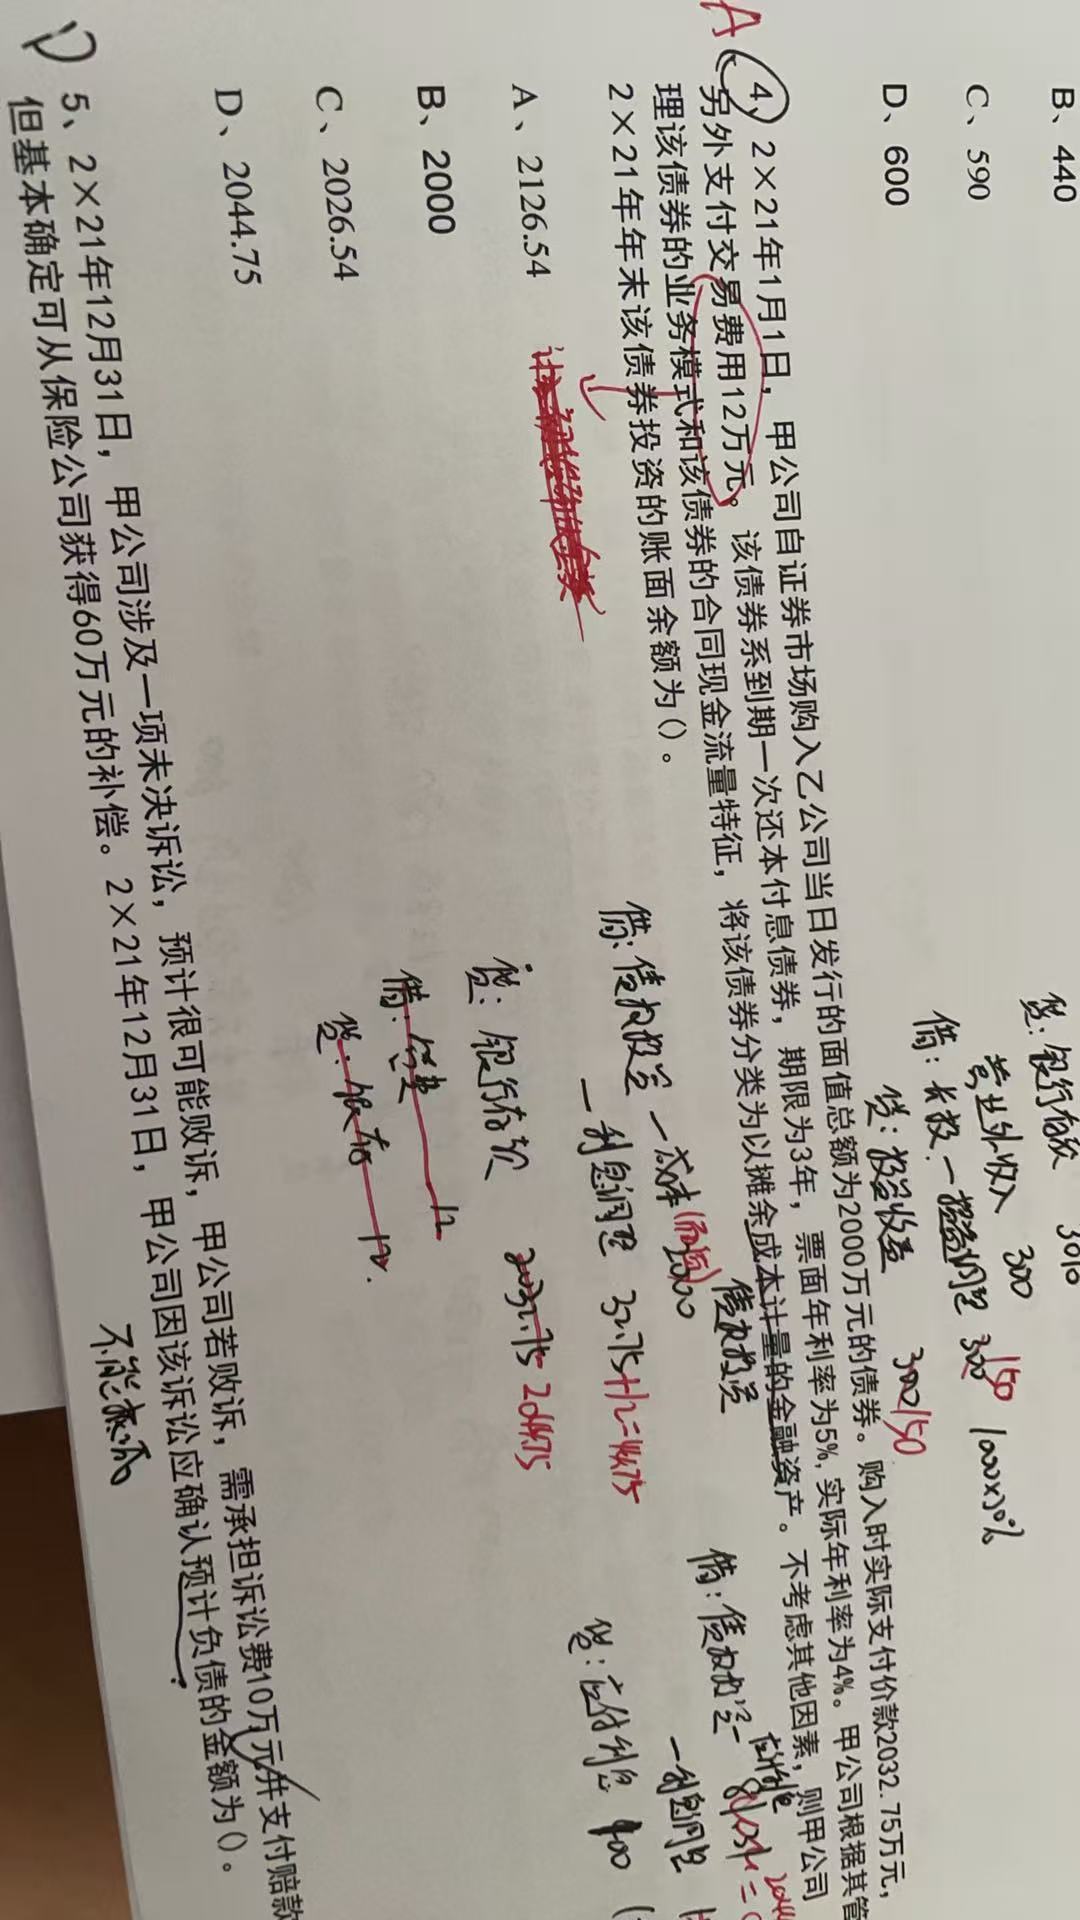 B、440
C、590
D、600
贷：银行存款
营业外收入 300
借：长投—损益调整 300 150 1000×30%
贷：投资收益 300 150
A
4、2×21年1月1日，甲公司自证券市场购入乙公司当日发行的面值总额为2000万元的债券。购入时实际支付价款2032.75万元，
另外支付交易费用12万元。该债券系到期一次还本付息债券，期限为3年，票面年利率为5%，实际年利率为4%。甲公司根据其管
理该债券的业务模式和该债券的合同现金流量特征，将该债券分类为以摊余成本计量的金融资产。不考虑其他因素，则甲公司
2×21年年末该债券投资的账面余额为()。
A、2126.54
B、2000
C、2026.54
D、2044.75
借：债权投资—成本(面值) 2000
—利息调整 32.75+12=44.75
贷：银行存款 2032.75 2044.75
贷：银存 12.
债权投资
借：债权投资—应计利息
—利息调整
贷：应付利息 100
D
5、2×21年12月31日，甲公司涉及一项未决诉讼，预计很可能败诉，甲公司若败诉，需承担诉讼费10万元并支付赔款
但基本确定可从保险公司获得60万元的补偿。2×21年12月31日，甲公司因该诉讼应确认预计负债的金额为()。